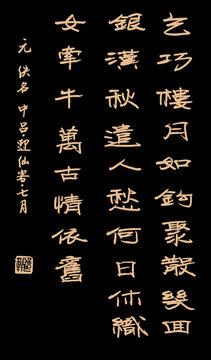 乞巧樓月如鉤聚散幾回
銀漢秋遣人愁何日休織
女牽牛萬古情依舊
元 佚名 中吕·迎仙客·七月